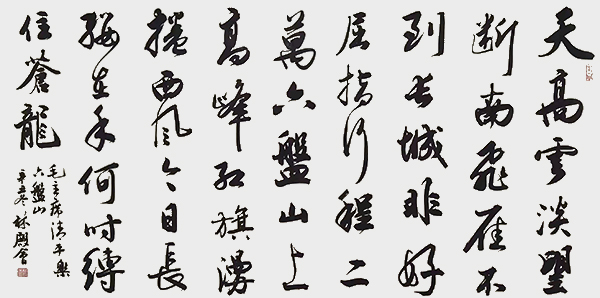 天高雲淡望
断南飛雁不
到长城非好
屈指行程二
萬六盤山上
高峰红旗漫
捲西风今日長
缨在手何时縛
住蒼龍
毛主席清平樂
六盤山
辛丑冬 林